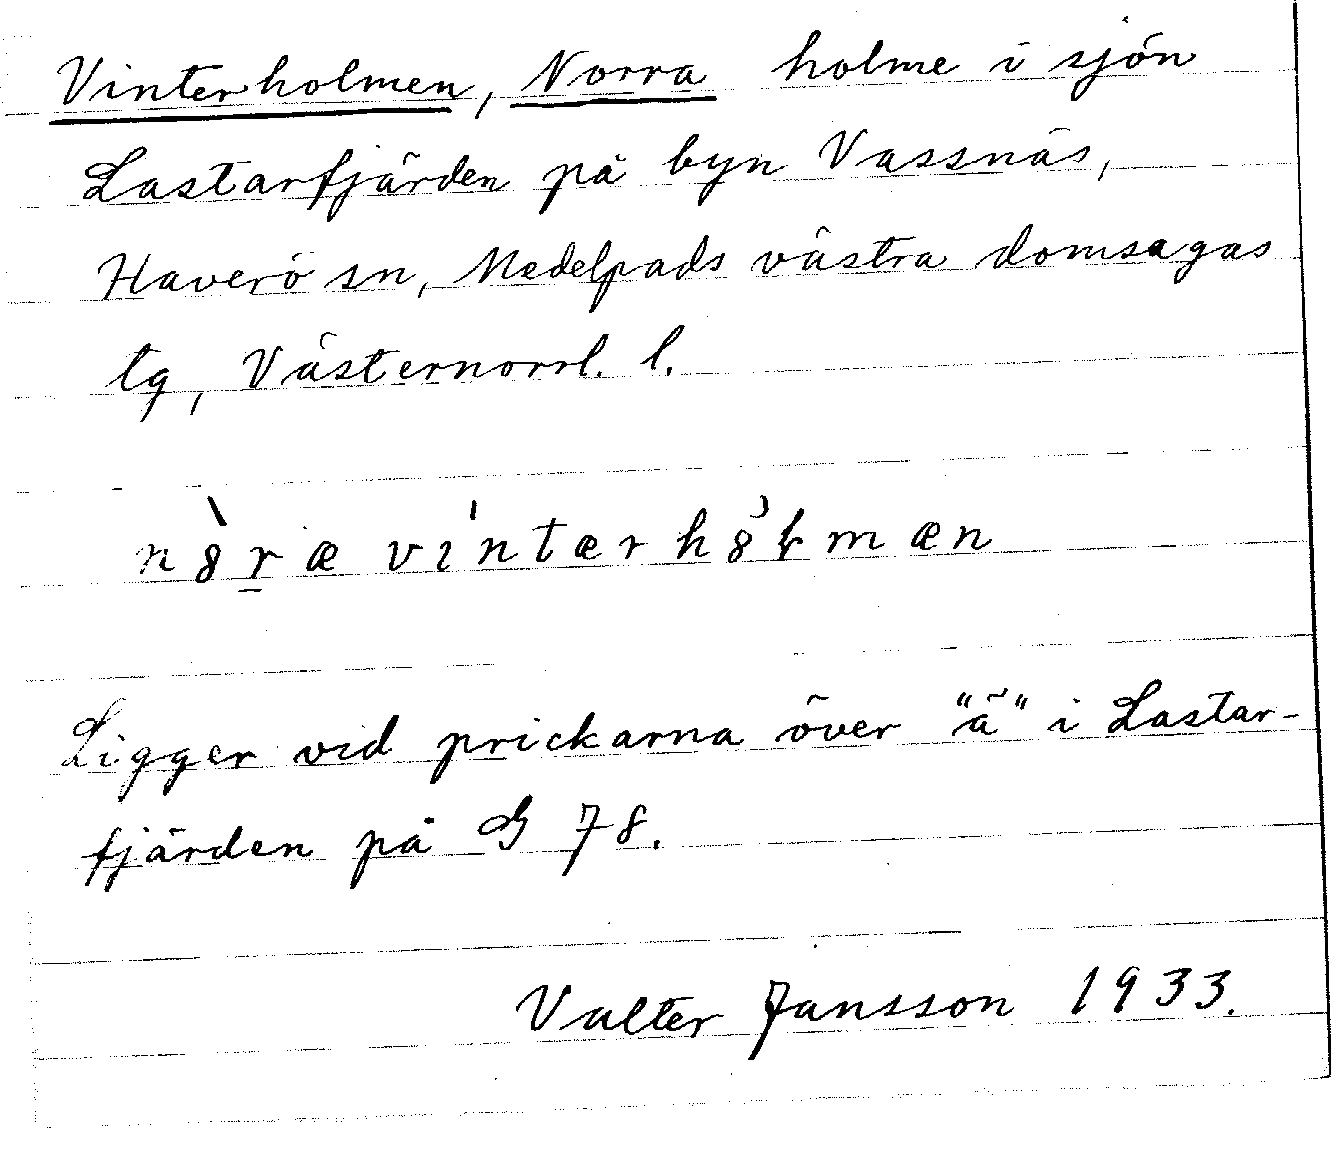 Vinterholmen, Norra holme i sjön
Lastarfjärden på byn Vassnäs,
Haverö sn, Medelpads västra domsagas
tg, Västernorrl. l.
n8̀r̠æ víntærh8̉ɫmæn
Ligger vid prickarna över "ä" i Lastar-
fjärden på G 78.
Valter Jansson 1933.